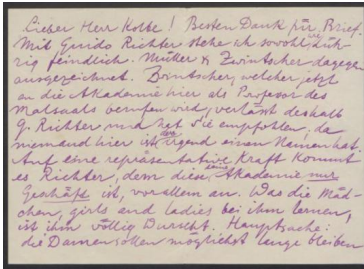 Lieber Herr Kolbe! Besten Dank für Brief.
Mit Guido Richter stehe ich sowohl
feindlich. Müller & Zwintscher dagegen
ausgezeichnet. Zwintscher, welcher jetzt
an die Akademie hier als Professor des
Malsaals berufen wird, verlässt deshalb
G. Richter und hat Sie empfohlen, da
niemand hier irgend einen Namen hat.
Auf eine repräsentative Kraft kommt
es Richter, dem diese Akademie nur
Geschäft ist, vor allem an. Was die Mäd-
chen, girls and ladies bei ihm lernen,
ist ihm völlig Hauptsache:
die Damen sollen möglichst lange bleiben